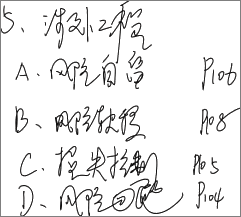 5、涉外工程
A、风险自留 P106
B、风险转移 P108
C、损失控制 P105
D、风险回避 P104